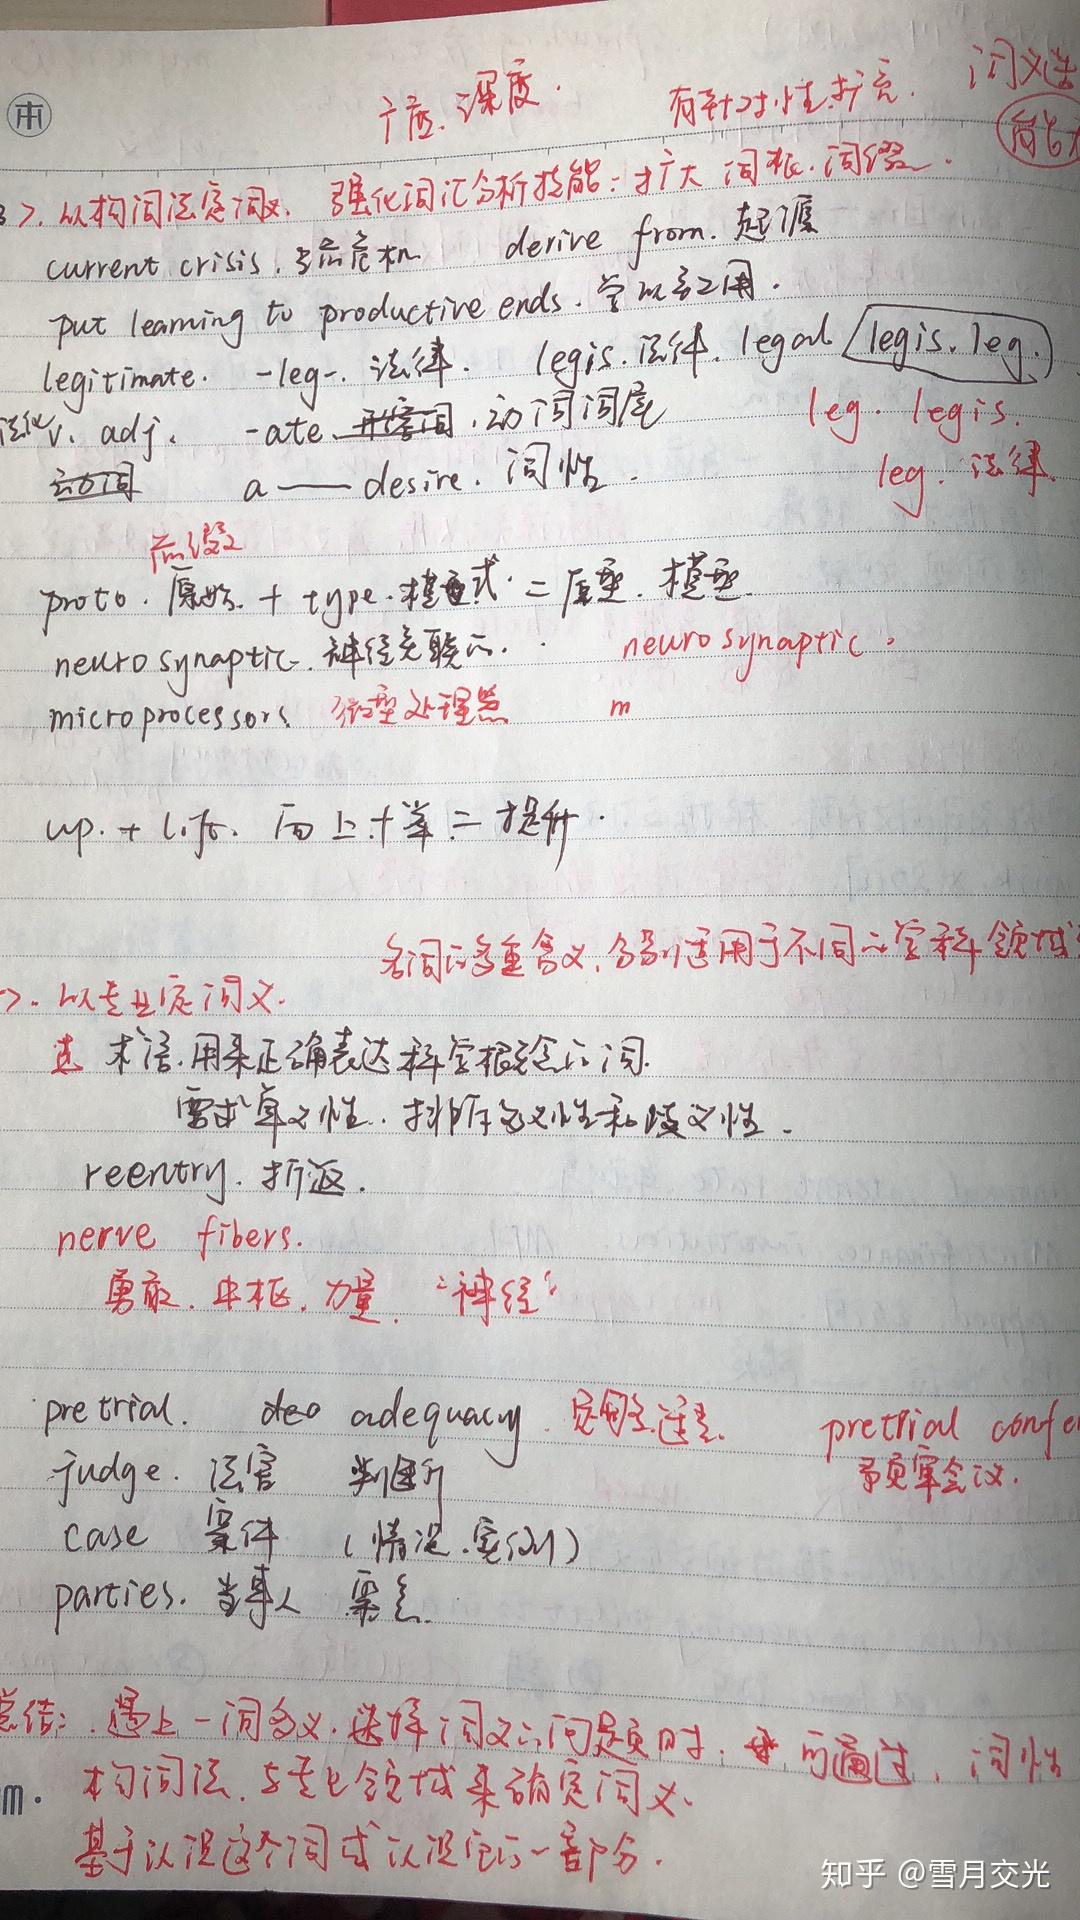 本
广度、深度.
有针对性扩充.
词义选
3>. 以构词法定词义. 强化词汇分析技能: 扩大词根.词缀.
current crisis. 当前危机 derive from. 起源
put learning to productive ends. 学以致用.
legitimate. -leg-. 法律. legis. 法律. legal legis. leg.
法化 v. adj. -ate 形容词. 动词词尾
leg. legis.
动词 a —— desire. 词性.
leg. 法律.
前缀
proto. 原始. + type. 模式. = 原型. 模型.
neurosynaptic. 神经突触的. neurosynaptic.
microprocessors 微型处理器 m
up. + lift. 向上+举=提升.
各词的多重含义, 分别适用于不同的学科领域
>. 以专业定词义.
选 术语.用来正确表达科学概念的词.
需求单义性. 排斥多义性和歧义性.
reentry. 折返.
nerve fibers.
勇敢. 中枢. 力量. "神经"
pretrial. deo adequacy. 完全适当. pretrial confe
预审会议.
judge. 法官 判断
case 案件 (情况.实例)
parties. 当事人 聚会.
总结: 遇上一词多义.选择词义的问题时, 可通过, 词性
m. 构词法, 与专业领域来确定词义.
基于认识这个词或认识它的一部分.
知乎 @雪月交光